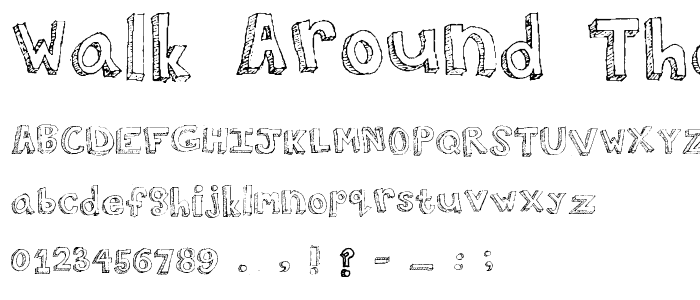 Walk Around The
ABCDEFGHIJKLMNOPQRSTUVWXYZ
abcdefghijklmnopqrstuvwxyz
0123456789 . , ! ? - _ : ;